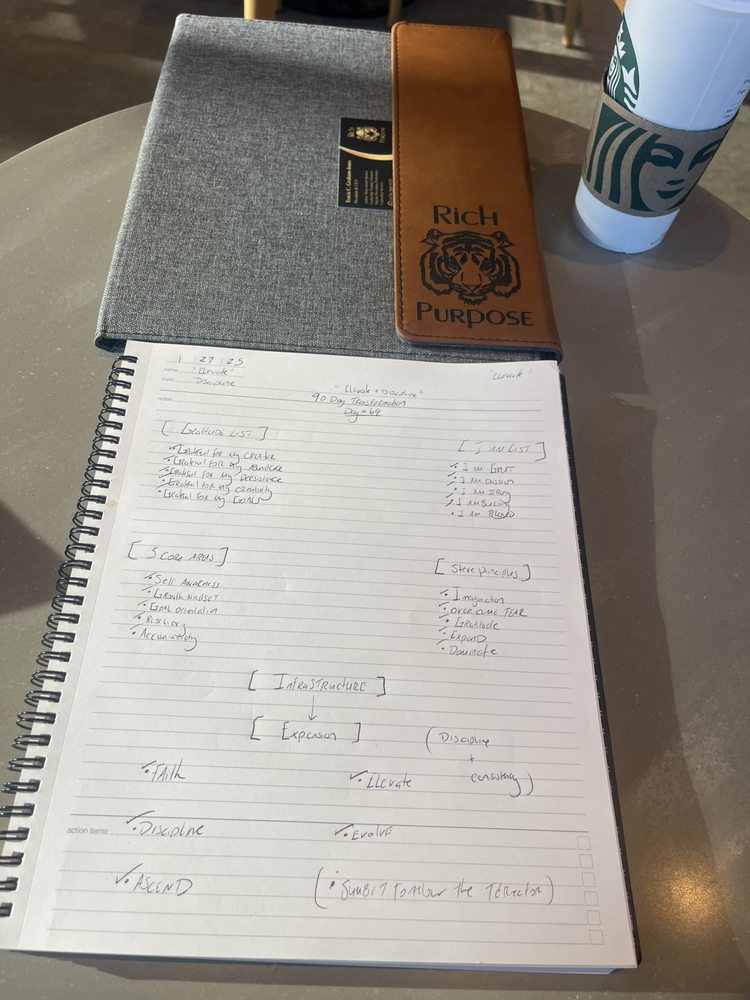 Rich
Purpose
Rich
Purpose
Travis C. Graham-Jones
President & CEO
1 27 25
name "Elevate"
topic Discipline
notes
"Elevate"
"Elevate + Discipline"
90 Day Transformation
Day # 64
[Gratitude List]
• Grateful for my Creator
• Grateful for my
• Grateful for my persistence
• Grateful for my creativity
• Grateful for my GOALS
[I AM LIST]
• I AM GREAT
• I AM
• I AM STRONG
• I AM
• I AM BLESSED
[5 CORE AREAS]
• Self AWARENESS
• Growth MINDSET
• Goal orientation
• Resiliency
• Accountability
[Steve principles]
• Imagination
• OVERCOME FEAR
• Gratitude
• EXPAND
• Dominate
[INFRASTRUCTURE]
↓
[Expansion]
(Discipline
+
consistency)
• FAith
• Elevate
action items
• Discipline
• EVOLVE
• ASCEND
(• follow the)